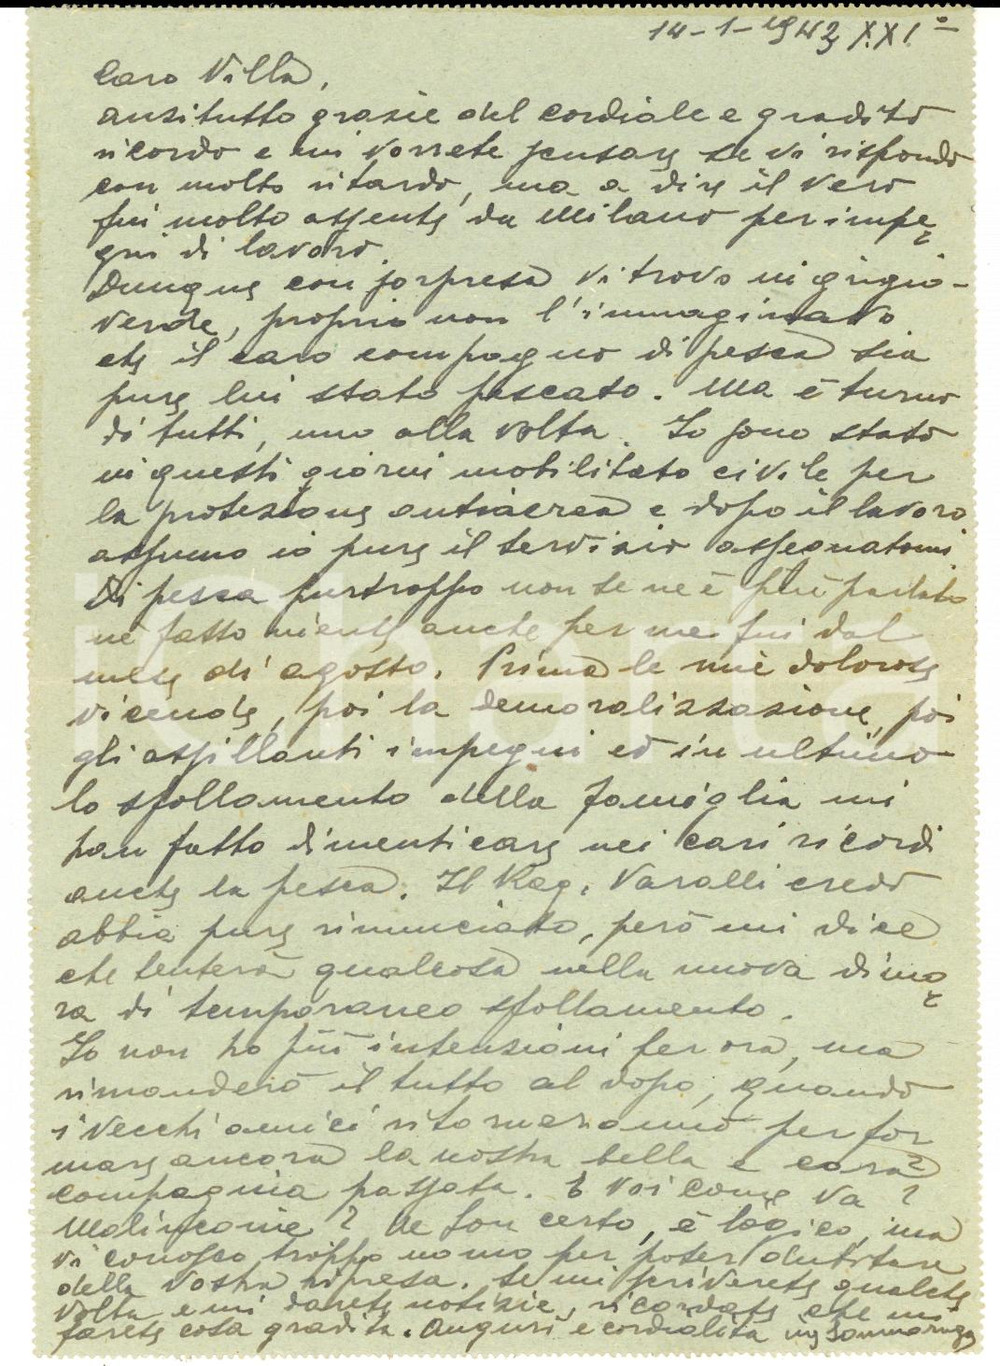 14-1-1943 XXI°
Caro Villa,
anzitutto grazie del cordiale e gradito
ricordo e mi vorrete scusare se vi rispondo
con molto ritardo, ma a dire il vero
fui molto assente da Milano per impe
gni di lavoro.
Dunque con sorpresa vi trovo in grigio-
verde, proprio non l'immaginavo
che il caro compagno di pesca sia
pure lui stato pescato. Ma è turno
di tutti, uno alla volta. Io sono stato
in questi giorni mobilitato civile per
la protezione antiaerea e dopo il lavoro
assumo io pure il servizio assegnatomi
Di pesca purtroppo non se ne è più parlato
nè fatto niente anche per me fui dal
mese di agosto. Prima le mie dolorose
vicende, poi la demoralizzazione, poi
gli assillanti impegni ed in ultimo
lo sfollamento della famiglia mi
han fatto dimenticare nei cari ricordi
anche la pesca. Il Rag. Varalli credo
abbia pure rinunciato, però mi dice
che tenterà qualcosa nella nuova dimo
ra di temporaneo sfollamento.
Io non ho più intenzioni per ora, ma
rimanderò il tutto al dopo, quando
i vecchi amici ritorneranno per for
mare ancora la nostra bella e cara
compagnia passata. E voi come va?
Malinconie? Ne son certo, è logico, ma
vi conosco troppo uomo per poter dubitare
della vostra ripresa. Se mi scriverete qualche
volta e mi darete notizie, ricordate che mi
farete cosa gradita. Auguri e cordialità ing Sommaruga